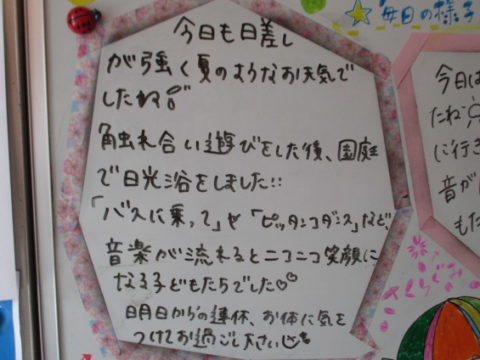 今日も日差し
が強く夏のようなお天気で
したね
触れ合い遊びをした後、園庭
で日光浴をしました!!
「バスに乗って」や「ピッタンコダンス」など、
音楽が流れるとニコニコ笑顔に
なる子どもたちでした♡♡
明日からの連休、お体に気を
つけてお過ごし下さい
☆毎日の様子
今日は
たね
に行き
音が
もた
さくらぐみ